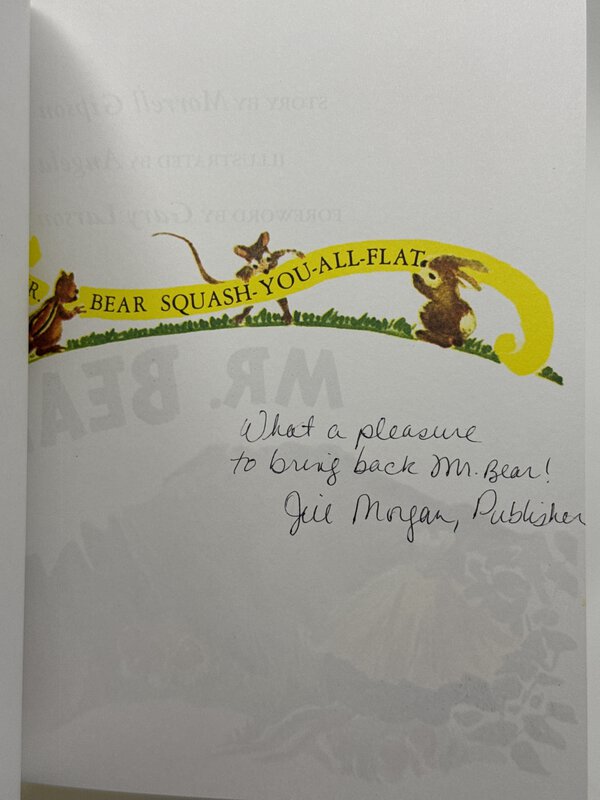 R. BEAR SQUASH-YOU-ALL-FLAT
What a pleasure
to bring back Mr. Bear!
Jill Morgan, Publisher
STORY BY Morrell Gipson
ILLUSTRATED BY Angela
FOREWORD BY Gary Larson
MR. BEA